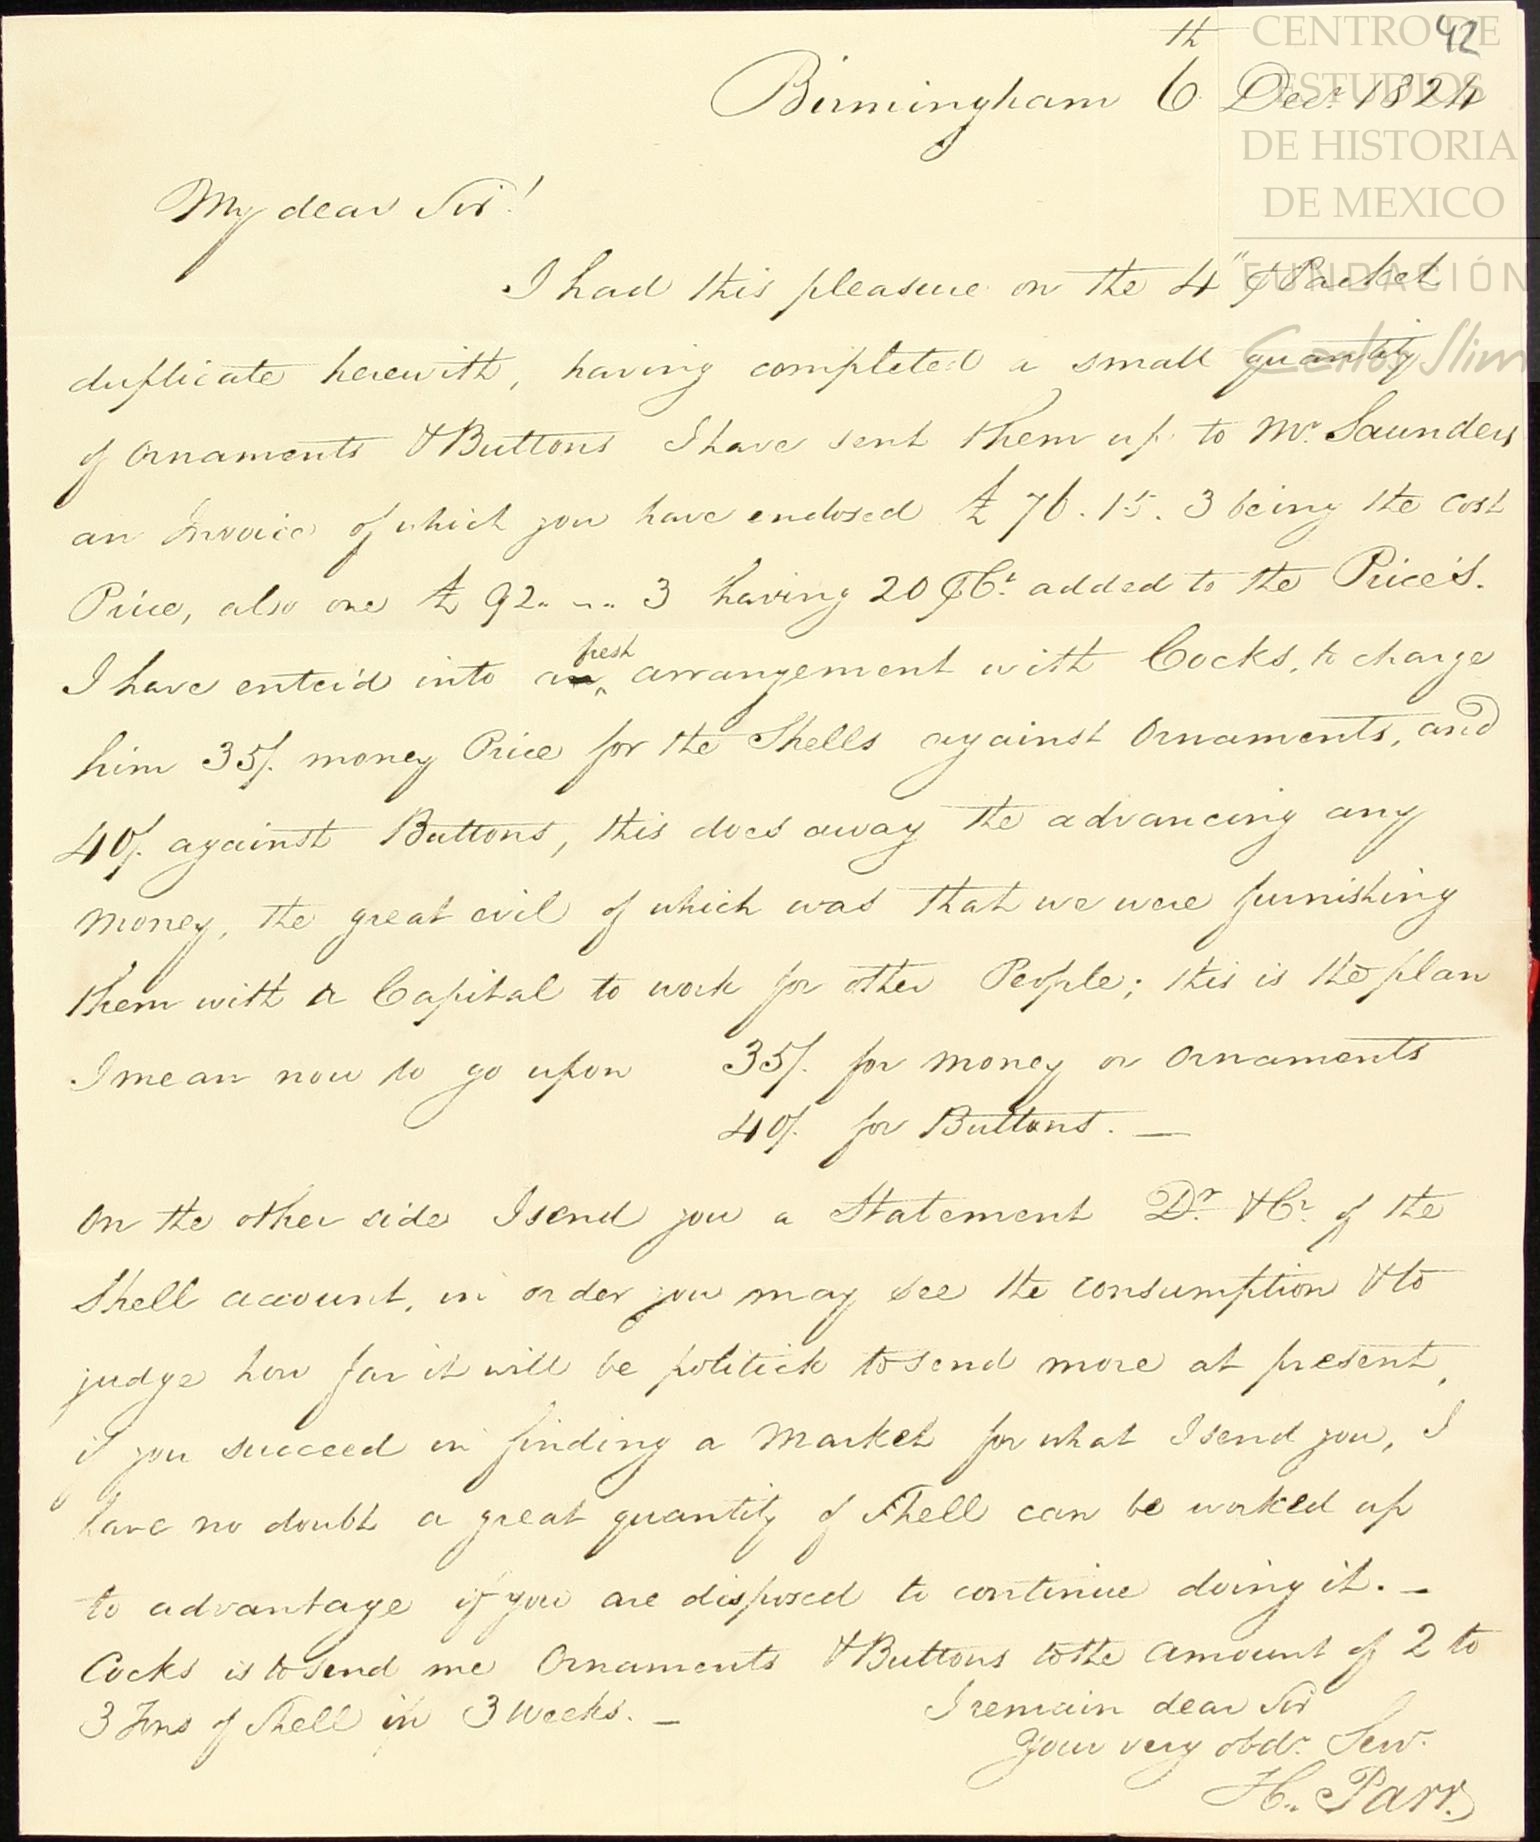 42
CENTRO DE
ESTUDIOS
DE HISTORIA
DE MEXICO
FUNDACIÓN
Carlos Slim
Birmingham 6th Decr. 1824
My dear Sir!
I had this pleasure on the 4" ⅌ Packet
duplicate herewith, having completed a small quantity
of Ornaments & Buttons I have sent them up to Mr. Saunders
an Invoice of which you have enclosed £ 76. 15. 3 being the Cost
Price, also one £ 92. ~.. 3 having 20 ⅌ Ct. added to the Price's.
I have enter'd into a fresh arrangement with Cocks, to charge
him 35/. money Price for the Shells against Ornaments, and
40/. against Buttons, this does away the advancing any
money, the great evil of which was that we were furnishing
them with a Capital to work for other People; this is the plan
I mean now to go upon 35/. for money or Ornaments
40/. for Buttons. —
On the other side I send you a Statement Dr. & Cr. of the
Shell account, in order you may see the consumption & to
judge how far it will be politick to send more at present,
if you succeed in finding a Market for what I send you, I
have no doubt a great quantity of Shell can be worked up
to advantage if you are disposed to continue doing it. —
Cocks is to send me Ornaments & Buttons to the amount of 2 to
3 Tons of Shell in 3 Weeks. —
I remain dear Sir
Your very obdt. Serv.
H. Parr.